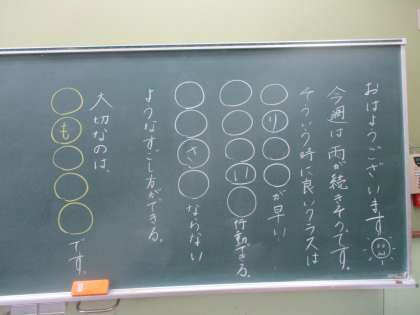 おはようございます
今週は雨が続きそうです。
そういう時に良いクラスは
○り○○が早い
○○○い○行動できる。
○○さ○ならない
ようなすごし方ができる。
大切なのは、
○も○○○です。